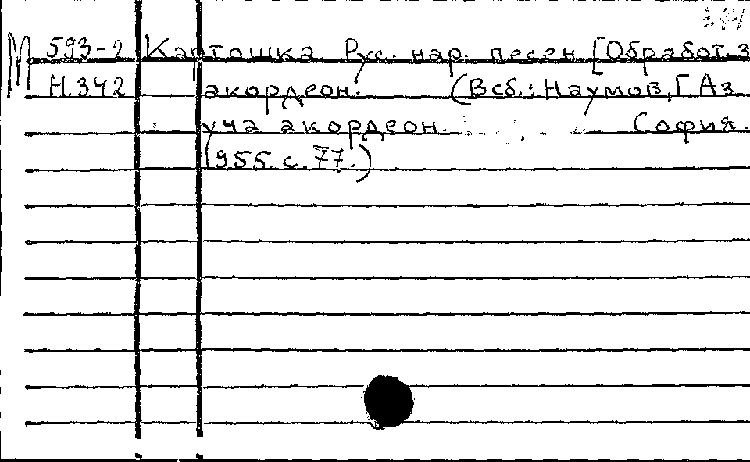 М 593-2 Картошка. Рус. нар. песен [Обработ. з
Н.342 акордеон. (В сб.: Наумов, Г. Аз
уча акордеон. София.
1955. с. 77.)